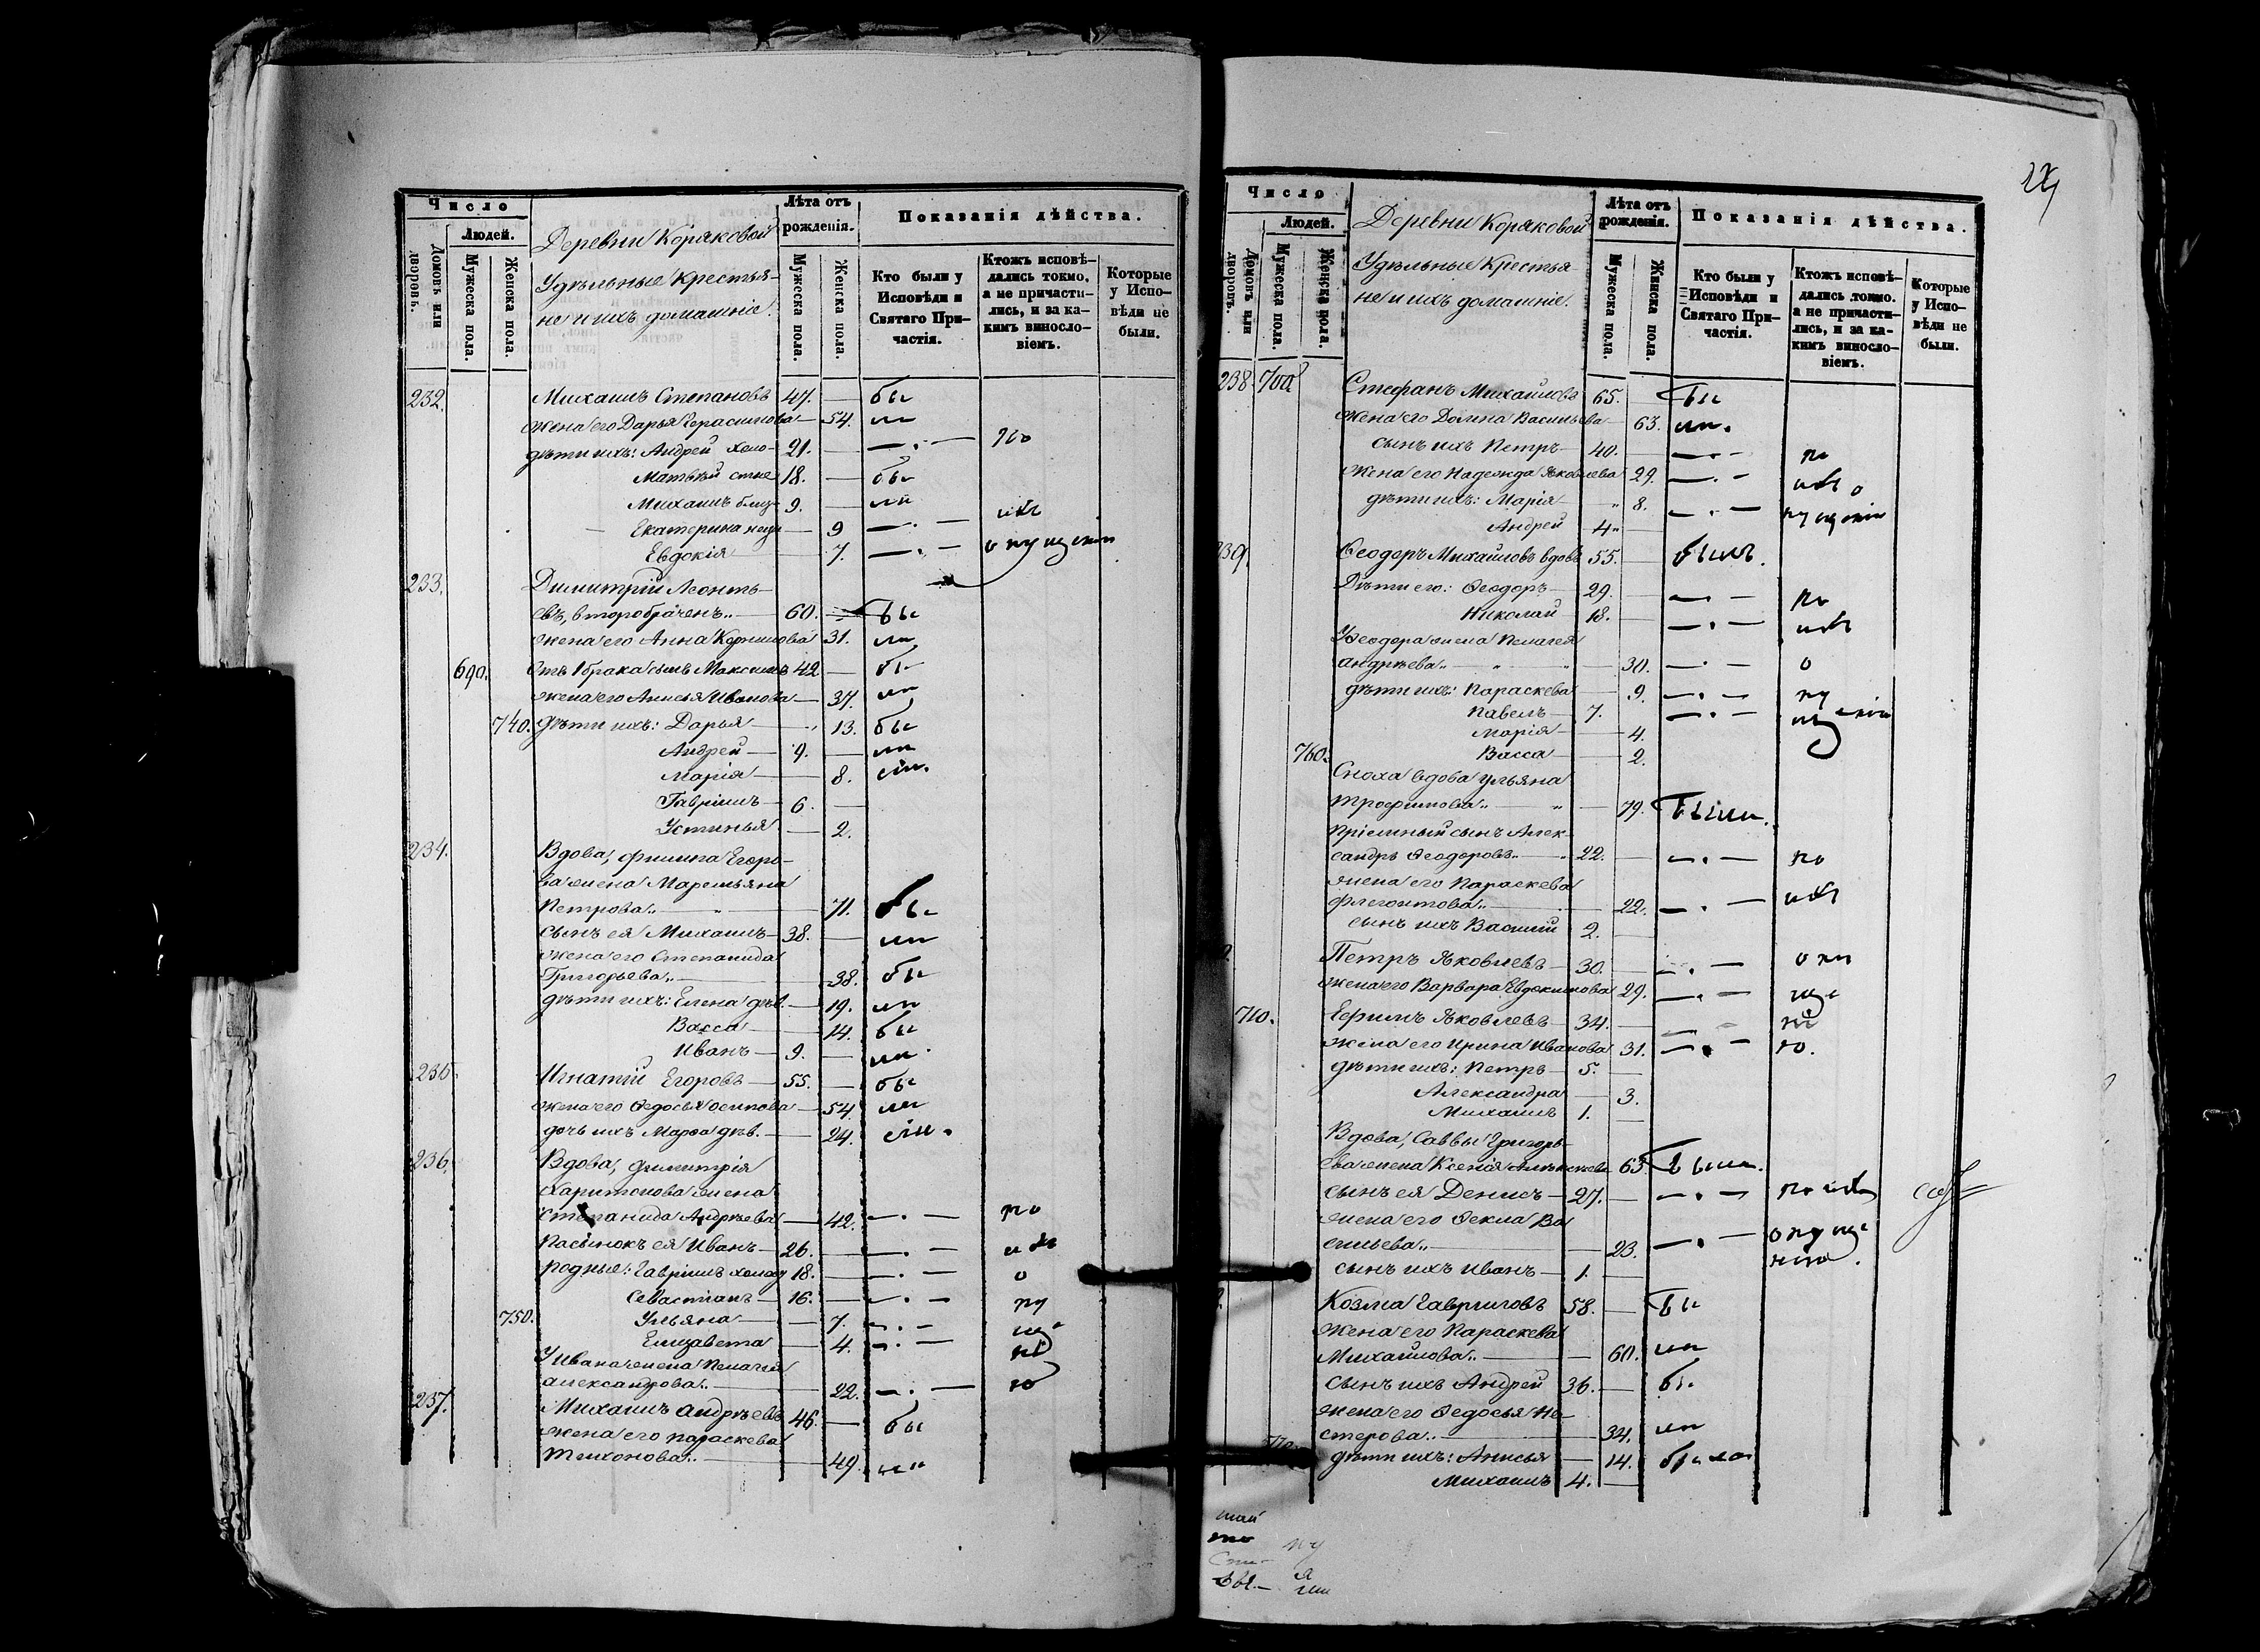 Число
Людей.
Домовъ или дворовъ.
Мужеска пола.
Женска пола.
Деревни Коряковой
Удѣльные Крестья-
не и ихъ домашніе.
Лѣта отъ рожденія.
Мужеска пола.
Женска пола.
Показанія дѣйства.
Кто были у Исповѣди и Святаго Причастія.
Ктожъ исповѣ-
дались токмо,
а не причасти-
лись, и за ка-
кимъ виносло-
віемъ.
Которые
у Испо-
вѣди не
были.
232. Михаилъ Степановъ 47. — бы
жена его Дарья Герасимова — 54. ли
дѣти ихъ: Андрей 21. — —.— по
Матвѣй 18. — бы
Михаилъ близ- 9. — ли
Екатерина — 9 —.—
Евдокія — 7. —.— опущенію
233. Димитрій Леонть-
евъ, второбраченъ 60. — бы
жена его Анна Корнилова 31. ли
690. Отъ 1 брака сынъ Максимъ 42 — бы
жена его Анисья Иванова — 37. ли
740. дѣти ихъ: Дарья 13. бы
Андрей — 9. — ли
Марія — 8.
Гавріилъ — 6. —
Устинья — 2.
234. Вдова, Филипа Егоро-
ва жена Маремьяна
Петрова — 71. бы
сынъ ея Михаилъ — 38. — ли
жена его Степанида
Григорьева — 38. бы
дѣти ихъ: Елена дѣв. — 19. ли
Васса — 14. бы
Иванъ — 9. — ли
235. Игнатій Егоровъ — 55. — бы
жена его Ѳедосья Осипова — 54. ли
дочь ихъ Марѳа дѣв. — 24.
236. Вдова, Димитрія
Харитонова жена
Степанида Андреева — 42. —.— по
Пасынокъ ея Иванъ — 26. — —.—
родные: Гавріилъ 18. — —.— о
Севастіанъ — 16. — —.— пу
750. Ульяна — 7. —.— ще
Елизавета — 4. —.— ні
У Ивана жена Пелагея
Александрова — 22. —.— ю
237. Михаилъ Андреевъ 46. — бы
жена его Параскева
Тихонова — 49. ли
24
Число
Людей.
Домовъ или дворовъ.
Мужеска пола.
Женска пола.
Деревни Коряковой
Удѣльные Крестья-
не и ихъ домашніе.
Лѣта отъ рожденія.
Мужеска пола.
Женска пола.
Показанія дѣйства.
Кто были у
Исповѣди и
Святаго При-
частія.
Ктожъ исповѣ-
дались токмо,
а не причасти-
лись, и за ка-
кимъ виносло-
віемъ.
Которые
у Испо-
вѣди не
были.
238. 700 Стефанъ Михайловъ 65. — бы
жена его Домна Васильева 63. ли.
сынъ ихъ Петръ 40. — —.— по
жена его Надежда Яковлева 29. —.—
дѣти ихъ: Марія 8. —.— пущенію
Андрей 4. —
239. Ѳеодоръ Михайловъ вдовъ 55. — былъ.
Дѣти его: Ѳеодоръ 29. — —.— по
Николай 18. — —.—
У Ѳеодора жена Пелагея
Андреева — 30. —.— о
дѣти ихъ: Параскева — 9. —.— пу
Павелъ — 7. —.—
Марія — 4.
760. Васса — 2.
Сноха вдова Ульяна
Трофимова — 79. была.
Пріемный сынъ Алек-
сандръ Ѳеодоровъ 22. — —.— по
жена его Параскева
Флегонтова 22. —.—
сынъ ихъ Василій 2. —
Петръ Яковлевъ — 30. — —.— опу
жена его Варвара Евдокимова 29. —.— ще
710. Ефимъ Яковлевъ — 34. — — ні
жена его Ирина Иванова 31. —.— ю.
дѣти ихъ: Петръ — 5. —
Александра — 3.
Михаилъ 1. —
Вдова, Саввы Григорь-
ева жена Ксенія Алексѣева 63 была.
сынъ ея Денисъ — 27. — —.—
жена его Ѳекла Ва
сильева — 23. —.— опуще
нію.
сынъ ихъ Иванъ — 1. —
Козма Гавриловъ 58. — бы
жена его Параскева
Михайлова — 60. ли
сынъ ихъ Андрей 36. — бы
жена его Ѳедосья Не-
стерова — 34. ли
дѣти ихъ: Анисья — 14.
Михаилъ 4. —